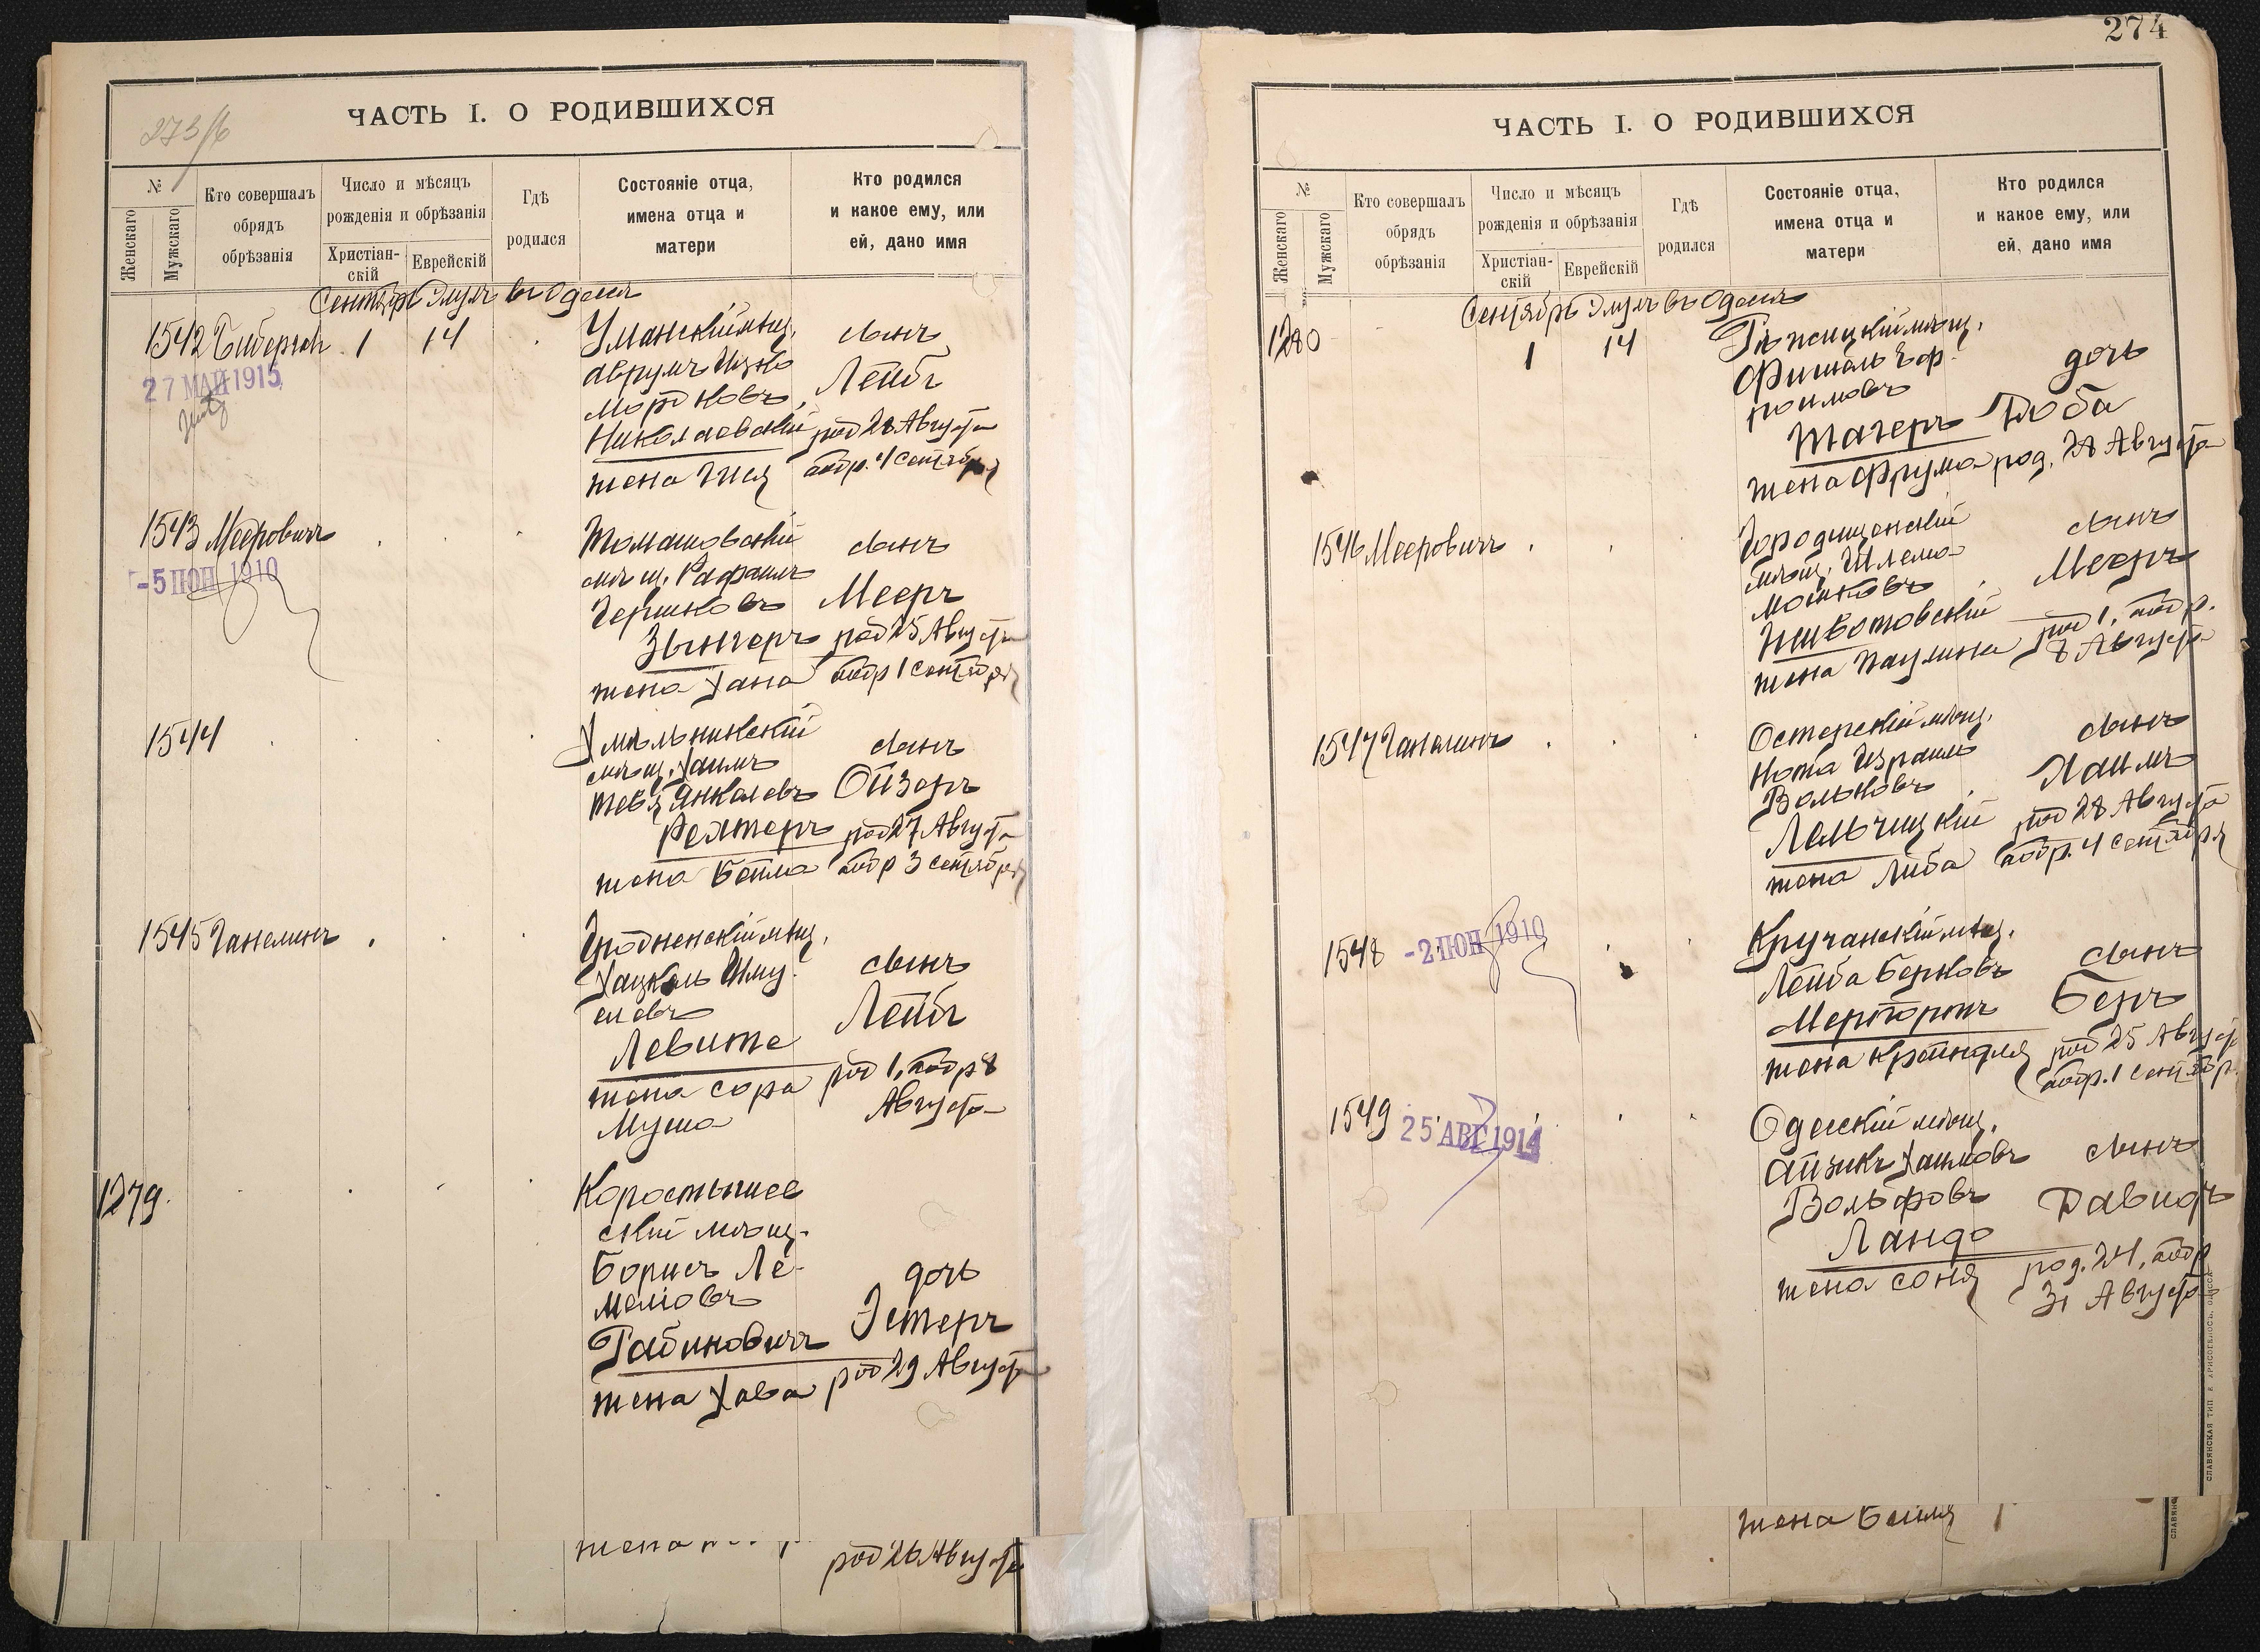 273/б
ЧАСТЬ I. О РОДИВШИХСЯ
№
Женскаго
Мужскаго
Кто совершалъ
обрядъ
обрѣзанія
Число и мѣсяцъ
рожденія и обрѣзанія
Христіан-
скій
Еврейскій
Гдѣ
родился
Состояніе отца,
имена отца и
матери
Кто родился
и какое ему, или
ей, дано имя
Сентябрь Элулъ въ Одессѣ
1542
1 14
27 МАЙ 1915
Уманскій мѣщ.
Аврумъ Ицко
Мордковъ
Николаевскій
жена Гися
сынъ
Лейбъ
род 28 Августа
обр. 4 сентября
1543 Мееровичъ
-5 ІЮН 1910
Томашовскій
мѣщ. Рафаилъ
Гершковъ
Зынгеръ
жена Хана
сынъ
Мееръ
род 25 Августа
обр 1 сентября
1544
Хмѣльникскій
мѣщ. Хаимъ
Тевя Янкелевъ
Рехтеръ
жена Бейла
сынъ
Ойзеръ
род 27 Августа
обр 3 сентября
1545 Ганелинъ
Гродненскій мѣщ.
Хацкель Шму-
елевъ
Левите
жена Сора
Муша
сынъ
Лейбъ
род 1, обр 8
Августа
1279.
Коростышев
скій мѣщ.
Борисъ
Рабиновичъ
жена Хава
дочь
Эстеръ
род 29 Августа
жена
род 26 Августа
274
ЧАСТЬ I. О РОДИВШИХСЯ
№
Женскаго
Мужскаго
Кто совершалъ
обрядъ
обрѣзанія
Число и мѣсяцъ
рожденія и обрѣзанія
Христіан-
скій
Еврейскій
Гдѣ
родился
Состояніе отца,
имена отца и
матери
Кто родился
и какое ему, или
ей, дано имя
Сентябрь Элулъ въ Одессѣ
1280
1 14
Рѣжицкій мѣщ.
Фишель Еф-
роимовъ
Тагеръ
жена Фрума
дочь
Доба
род. 28 Августа
1546 Мееровичъ
Городищенскій
мѣщ. Шлема
Мошковъ
Животовскій
жена Паулина
сынъ
Мееръ
род 1, обр.
8 Августа
1547 Ганелинъ
Остерскій мѣщ.
Нота Израиль
Вольковъ
Лельчицкій
жена Либа
сынъ
Хаимъ
род 28 Августа
обр. 4 сентября
1548
-2 ІЮН 1910
Кручанскій мѣщ.
Лейба Берковъ
жена Крейндля
сынъ
Беръ
род 25 Август
обр. 1 сентябр.
1549
25 АВГ 1914
Одесскій мѣщ.
Айзикъ Хаимовъ
Вольфовъ
Ландо
жена Соня
сынъ
Давидъ
род. 24, обр
31 Августа
жена Бейля